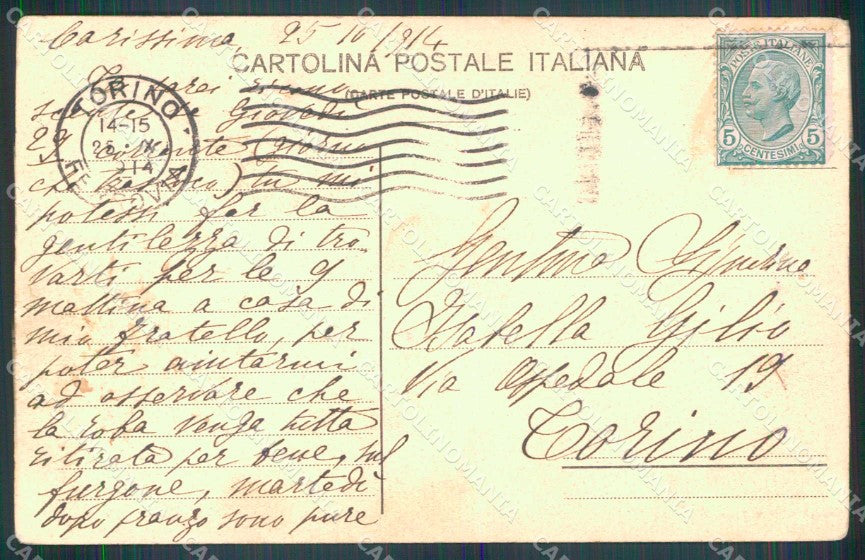 Carissima, 25 10/914
CARTOLINA POSTALE ITALIANA
(CARTE POSTALE D'ITALIE)
Ti sarei
se Giovedì
29 corrente (giorno
che) tu mi
potessi far la
gentilezza di tro
varti per le 9
mattina a casa di
mio fratello, per
poter aiutarmi
ad osservare che
la roba venga tutta
ritirata per bene, sul
furgone, martedì
dopo pranzo sono pure
TORINO
14-15
FERROVIA
POSTE ITALIANE
5 5
CENTESIMI
Gentma Signorina
Isabella Gilio
Via Ospedale 19
Torino
CARTOLINOMANIA